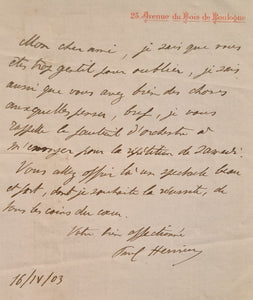 25, Avenue du Bois de Boulogne
Mon cher ami, je sais que vous
êtes trop gentil pour oublier, je sais
aussi que vous avez bien des choses
auxquelles penser, bref, je vous
rappelle le fauteuil d'orchestre à
m'envoyer pour la répétition de Samedi.
Vous allez offrir là un spectacle beau
et fort, dont je souhaite la réussite, de
tous les coins du cœur.
Votre bien affectionné
Paul Hervieu
16/IV/03